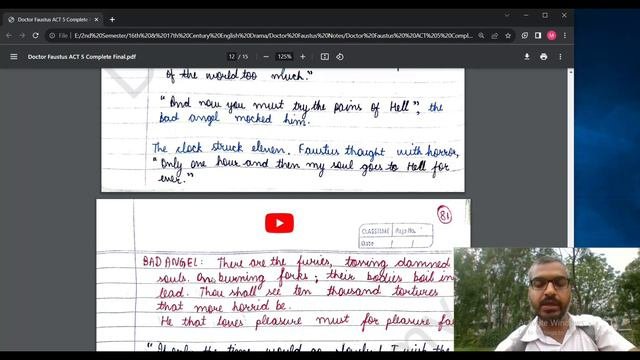 Doctor Faustus ACT 5 Complete F
File | E:/2nd%20Semester/16th%20&%2017th%20Century%20English%20Drama/Doctor%20Faustus%20Notes/Doctor%20Faustus%20%20ACT%205%20Compl...
Doctor Faustus ACT 5 Complete Final.pdf
12 / 15
125%
of the world too much."
"And now you must try the pains of Hell", the
bad angel mocked him.
The clock struck eleven. Faustus thought with horror,
"Only one hour and then my soul goes to Hell for
ever."
CLASSTIME Page No.
Date / /
81
BAD ANGEL: There are the furies, tossing damned
souls. On burning forks; their bodies boil in
lead. Thou shall see ten thousand tortures
that more horrid be.
He that loves pleasure must for pleasure fa
"If only the time would go slowly! I wish the